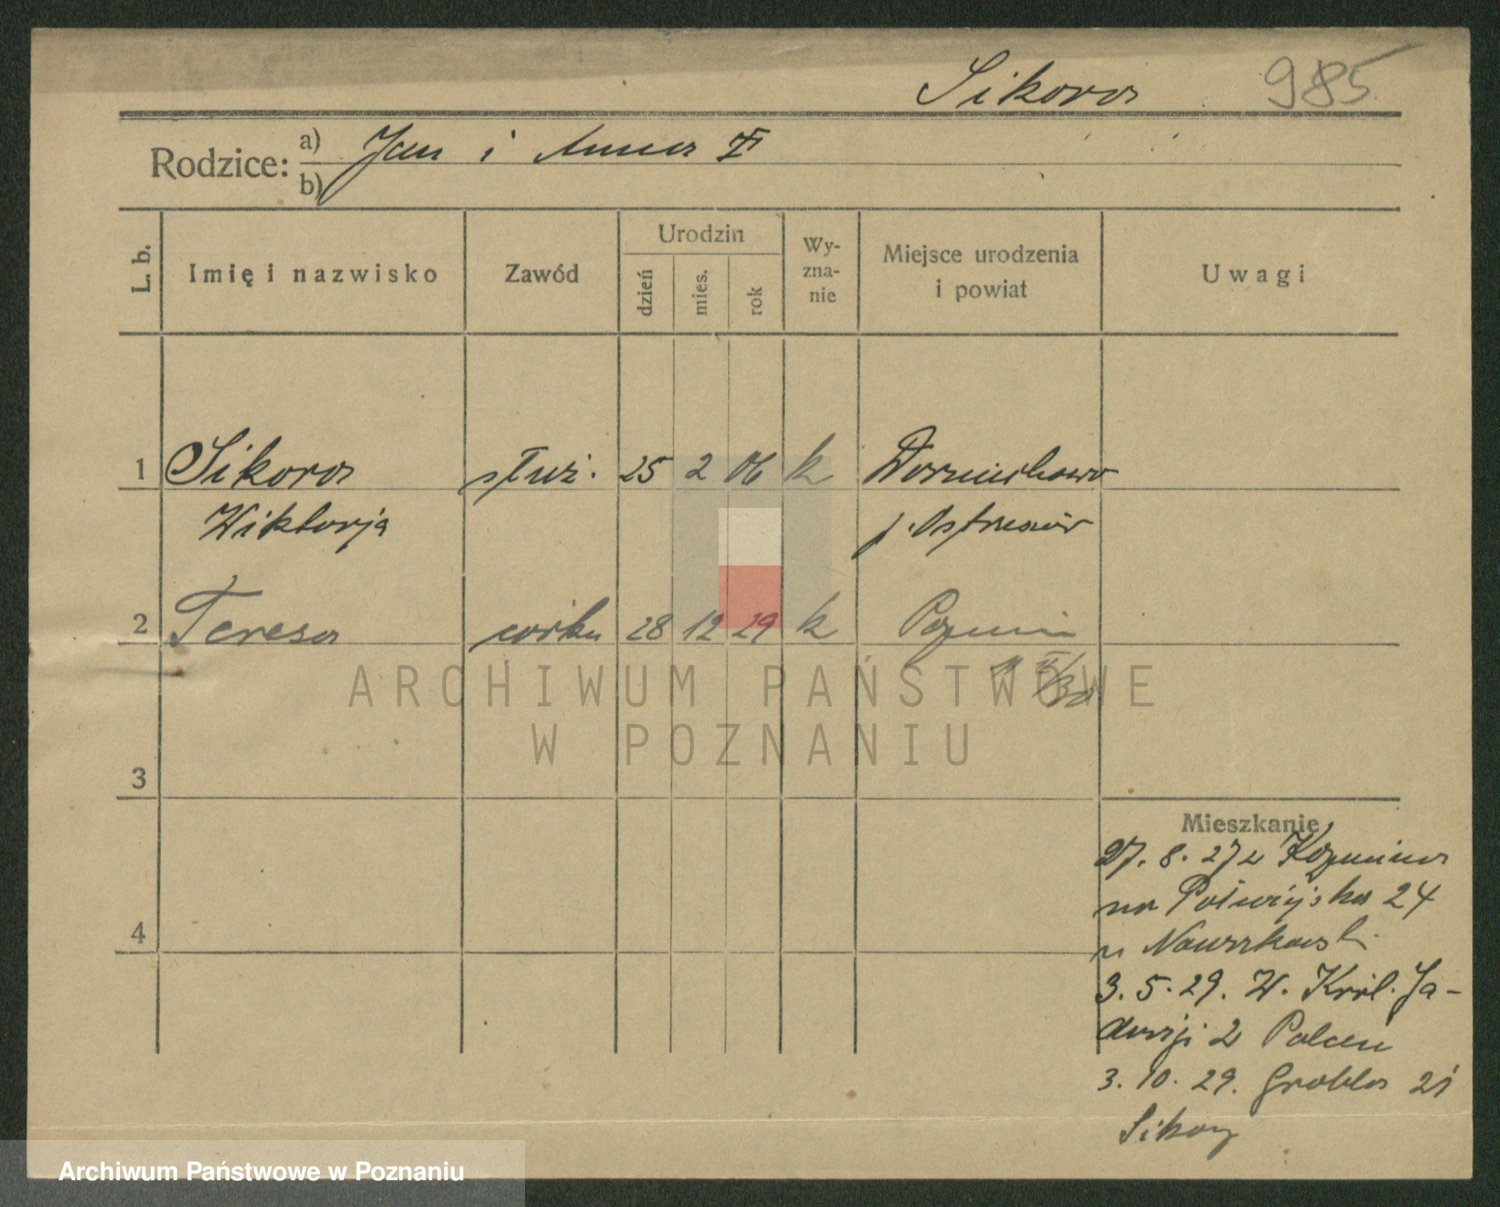 Sikora 985
Rodzice: a) Jan i Anna
b)
L. b. Imię i nazwisko Zawód Urodzin dzień mies. rok Wyznanie Miejsce urodzenia i powiat Uwagi
1 Sikora służ. 25 2 06 k
Wiktorja p. Ostrzeszów
2 Teresa córka 28 12 29 k Poznań
ARCHIWUM PAŃSTWOWE
W POZNANIU
3
Mieszkanie
27. 8. 27 z Koźmina
na Półwiejska 24
4
3. 5. 29. W. Król. Ja-
dwigi 2
3. 10. 29. Grobla 21
Archiwum Państwowe w Poznaniu